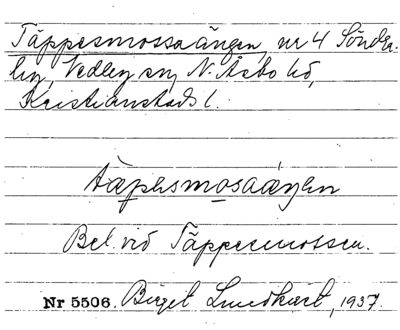 Täppesmossaängen, nr 4 Sönder-
by, Vedby sn, N. Åsbo hd,
Kristianstads l.
täpesmosaäŋen
Bel. vid Täppesmossen.
Nr 5506. Birgit Lundkvist, 1937.